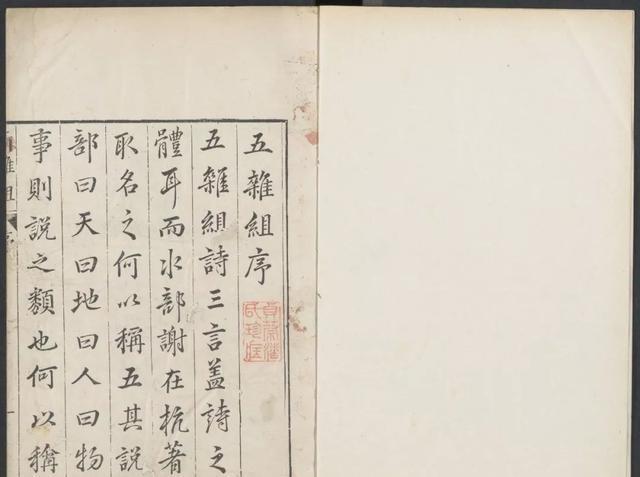 五雜組序
五雜組詩三言盖詩之
體耳而水部謝在杭著
取名之何以稱五其說
部曰天曰地曰人曰物
事則說之類也何以稱